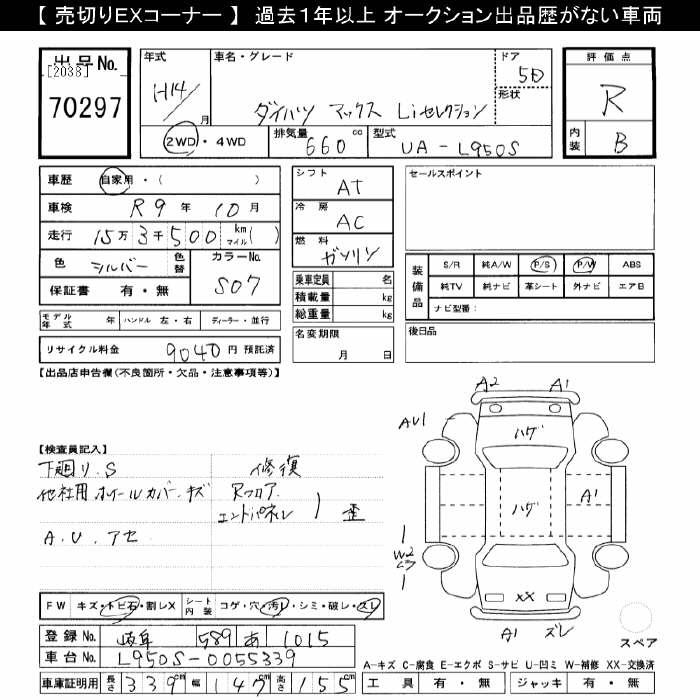 【 売切りEXコーナー 】 過去１年以上 オークション出品歴がない車両
出品No.
[2038]
70297
年式 車名・グレード ドア
H14/ 月 ダイハツ マックス Liセレクション 5D
形状
2WD・4WD 排気量 660 cc 型式 UA-L950S
評価点
R
内装 B
車歴 自家用・( )
車検 R9年 10月
走行 15万3千500 km マイル( )
色 シルバー 色替 カラーNo. S07
保証書 有・無
モデル年式 年 ハンドル 左・右 ディーラー・並行
リサイクル料金 9040 円 預託済
シフト AT
冷房 AC
燃料 ガソリン
乗車定員 名
積載量 kg
総重量 kg
名変期限
月 日
セールスポイント
装備品 S/R 純A/W P/S P/W ABS
純TV 純ナビ 革シート 外ナビ エアB
ナビ型番:
後日品
【出品店申告欄(不良箇所・欠品・注意事項等)】
【検査員記入】
下廻り.S 修復
他社用ホイールカバー.キズ Rフロア
エンドパネル ) 歪
A.U.アセ
FW キズ・トビ石・割レX シート内装 コゲ・穴・汚レ・シミ・破レ・スレ
登録No. 岐阜 589 あ 1015
車台No. L950S-0055339
車庫証明用 長さ 339 幅 147 高さ 155
A2 A1
AU1
ハゲ
A1
ハゲ
W2
XX
A1 ズレ
スペア
A-キズ C-腐食 E-エクボ S-サビ U-凹ミ W-補修 XX-交換済
工具 有・無 ジャッキ 有・無